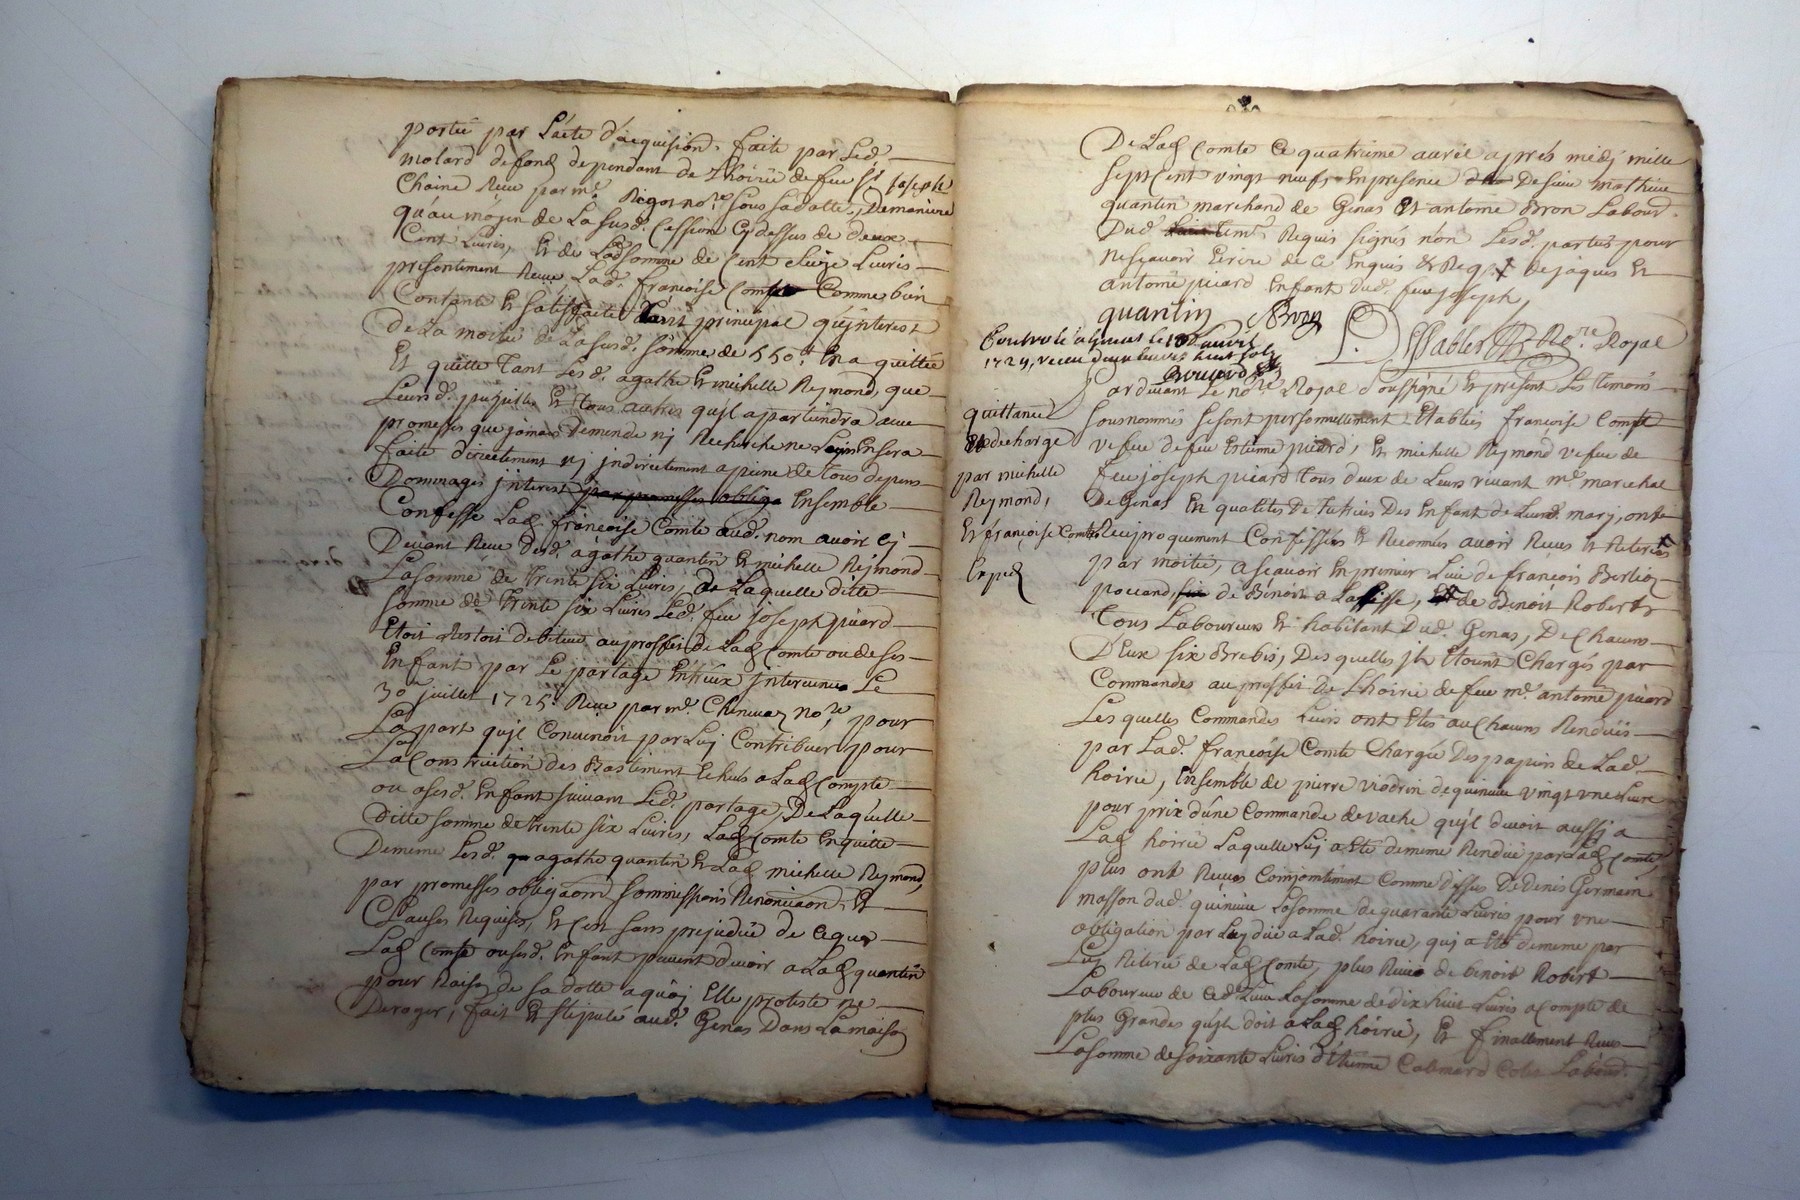 portée par L'acte d'acquision, faite par Led.
molard de fond dependant de L'hoirie de feu Sr Joseph
Chaine Reçu par me. Rigot nore. sous sa datte, De maniere
qu'au moyen de La susd. Cession Cy dessus de deux
Cent Livres, Et de Lad. somme de Cent Livres
presentement Reçue Lad. françoise Comte Comme bien
Contente Et satisfaite principal qu'interest
De La moitié de La susd. somme de 550 lt En a quittée
Et quitte Tant Lesd. agathe Et michelle Reymond, que
Leursd. pupilles Et Tous autres qu'il appartiendra avec
promesses que jamais Demande ny Recherche ne Leur En sera
faite directement ny jndirectement a peine de Tous depens
Dommages jnterest par promesses obliga Ensemble
Confesse Lad. françoise Comte aud. nom avoir cy
Devant Reçu desd. agathe quantin Et michelle Reymond
La somme de Trente six Livres, de Laquelle ditte
somme de Trente six Livres Led. feu joseph picard
Etoit Restoit debiteur au proffit de Lad. Comte ou de ses
Enfant par Le partage Entreux jntervenu Le
30e juillet 1725. Reçu par me. Chenevaz nore, pour
La part qu'il Convenoit par Luy Contribuer pour
La Construction des Bastiment Echus a Lad. Compte
ou a sesd. Enfant suivant Led. partage, De Laquelle
Ditte somme de trente six Livres, Lad. Comte En quitte
De meme Lesd. agathe quantin Et Lad. michelle Reymond,
par promesses obligaõn sommissions Renonciaõn, Et
Clauses Requises, Et C'est sans prejudice de ce que
Lad. Comte ou sesd. Enfant peuvent devoir a Lad. quantin
pour Raison de sa dotte a quoy Elle proteste ne
Deroger, fait Et stipulé aud. Genas Dans La maison
De Lad. Comte Ce quatrieme avril après midy mille
Sept Cent vingt neuf, En presence De sieur mathieu
quantin marchand de Genas Et antoine Bron Labour.
Dud. Lieu Temt. Requis signés non Lesd. parties pour
ne sçavoir Ecrire de Ce Enquis & Req. de jaques Et
antoine picard Enfant dud. feu joseph,
quantin Bron
Controlé a le avril
1729, receu deux livres huit sols
Nore. Royal
ardevant Le nore. Royal soussigné Et present Les Temoins
sousnommés se sont personnellement Etablies françoise Comte
veuve de feu Estienne picard, Et michelle Reymond veuve de
feu joseph picard Tous deux de Leurs vivant me. marechal
De Genas En qualités de Tutrices Des Enfant de Leursd. mary, ont
Reciproquement Confessées Et Reconnus avoir Reçus Et Retirées
par moitié, a sçavoir En premier Lieu de françois Berlioz
de Benoit Robert
Tous Laboureurs Et habitant Dud. Genas, De Chacuns
D'Eux six Brebis, Desquelles jls Etoient Chargés par
Commandes au proffit De L'hoirie de feu me. antoine picard
Lesquelles Commandes Leurs ont Etés au Chacuns Rendues
par Lad. françoise Comte Chargée Des papiers de Lad.
hoirie, Ensemble de pierre viodrin de vingt une Livre
pour prix d'une Commande de vache qu'il devoit aussj a
Lad. hoirie Laquelle Luy a Eté de meme Rendue par Lad. Comte,
plus ont Reçues Conjointement Comme dessus De denis Germain
masson dud. La somme de quarante Livres pour une
obligation par Luy düe a Lad. hoirie, qui a Eté de meme par
Luy Retirée de Lad. Comte, plus Reçu de benoit Robert
Laboureur de Ced. Lieu La somme de dix huit Livres a Compte de
plus Grandes qu'jl doit a Lad. hoirie, Et finallement Reçu
La somme de soixante Livres d'Etienne Labour.
quittance
Et decharge
par michelle
Reymond,
Et françoise Comte
Exped.